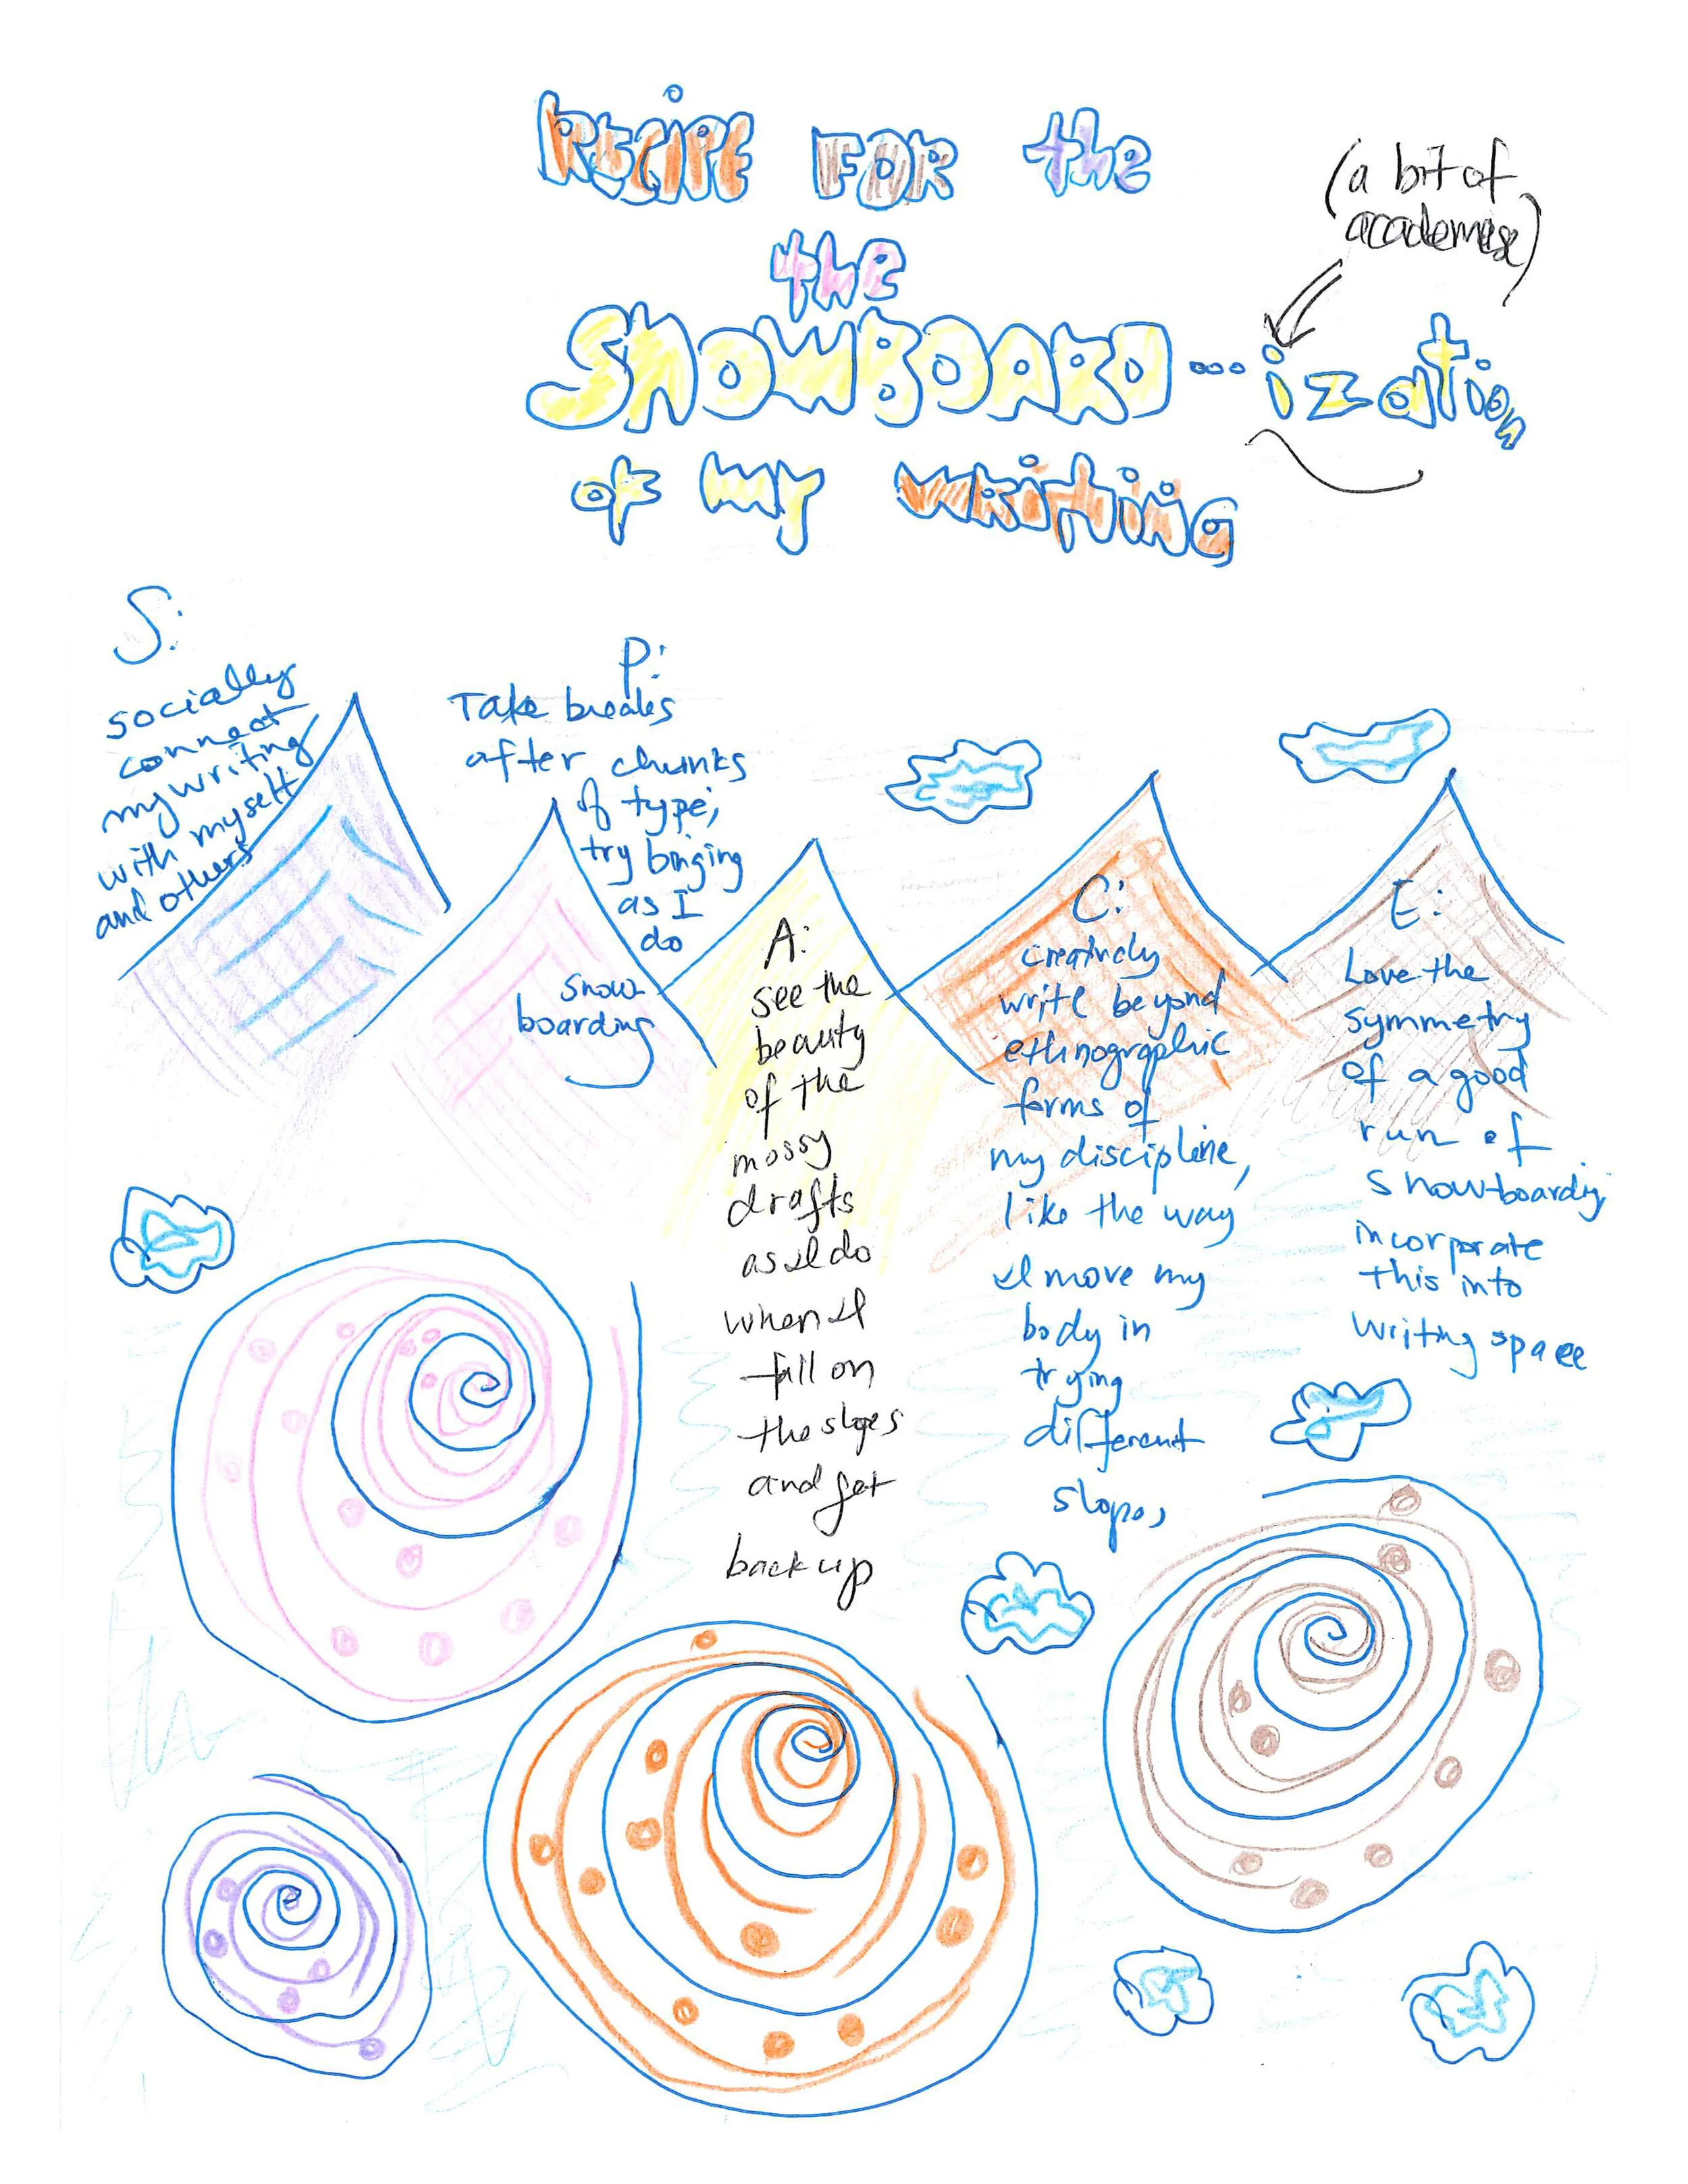 RECIPE FOR the
the
SNOWBOARD...ization
of my writing
(a bit of
academese)
S:
socially
connect
my writing
with myself
and others
P:
Take breaks
after chunks
of type;
try binging
as I
do
snow-
boarding
A:
see the
beauty
of the
mossy
drafts
as I do
when I
fall on
the slopes
and get
back up
C:
creatively
write beyond
ethnographic
forms of
my discipline,
like the way
I move my
body in
trying
different
slopes
E:
Love the
symmetry
of a good
run of
snowboarding
incorporate
this into
writing space